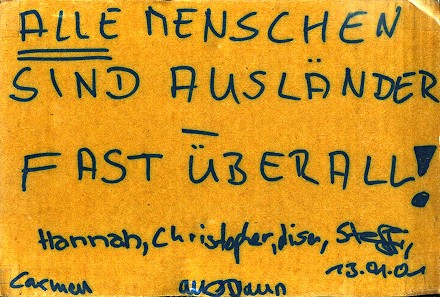 ALLE MENSCHEN
SIND AUSLÄNDER
–
FAST ÜBERALL!
Hannah, Christopher, Lisa, Steffi,
13.01.01
Carmen aus Daun